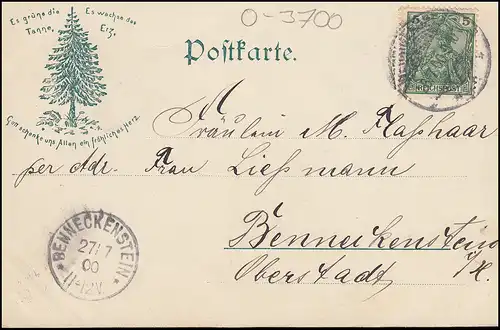 O-3700
Es grüne die Tanne,
Es wachse das Erz,
Gott schenke uns Allen ein fröhliches Herz.
Postkarte.
5 5
REICHSPOST
Fräulein M. Flashaar
per Adr. Frau Liessmann
Benneckenstein
Oberstadt /H.
* BENNECKENSTEIN *
27/7
00
11-12V.